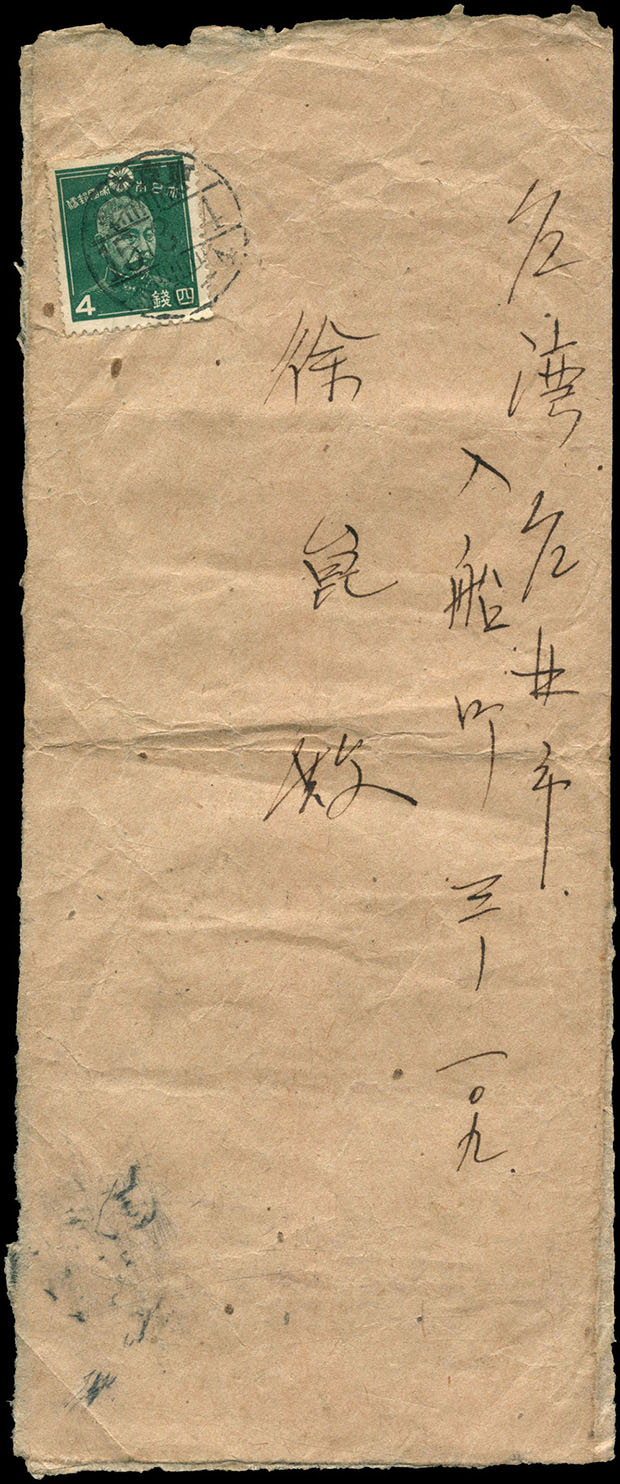 台湾台北市
入船町三ー一〇九
徐崑殿
大日本帝國郵便
4
四錢